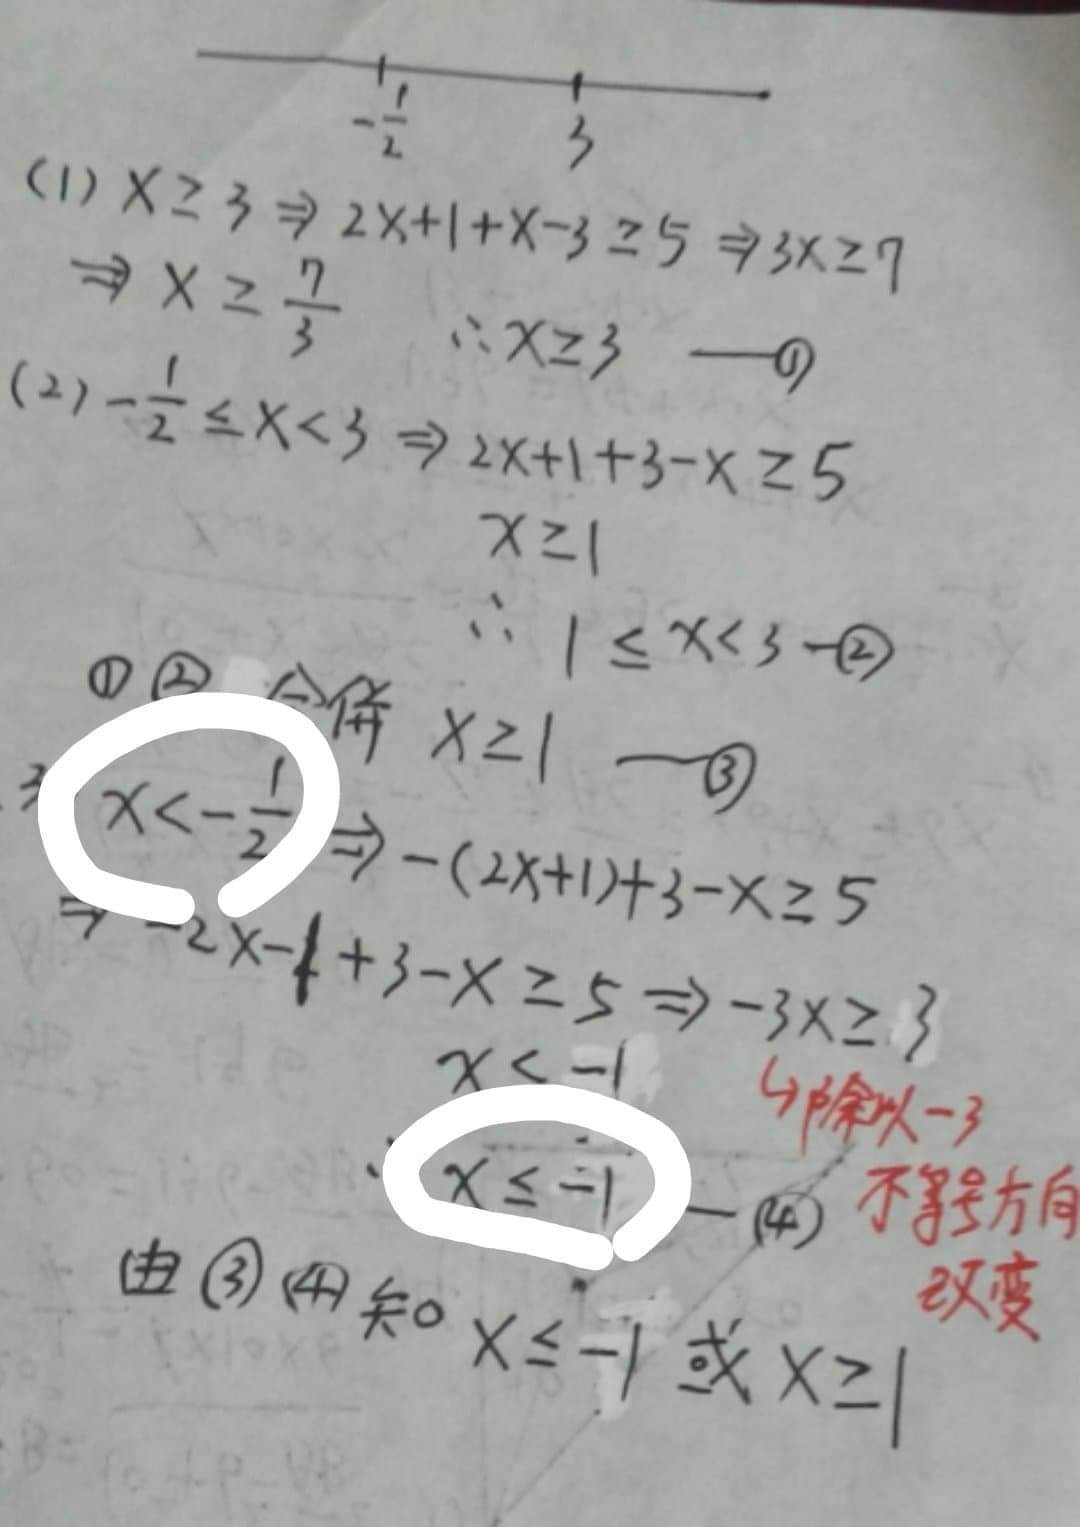 -1/2 3
(1) x≥3 ⇒ 2x+1+x-3≥5 ⇒ 3x≥7
⇒ x≥7/3 ∴x≥3 —①
(2) -1/2≤x<3 ⇒ 2x+1+3-x≥5
x≥1
∴ 1≤x<3 —②
①② 合併 x≥1 —③
3 x<-1/2 ⇒ -(2x+1)+3-x≥5
⇒ -2x-1+3-x≥5 ⇒ -3x≥3
x<-1
↳除以-3
∴ x≤-1 —(4)
不等号方向
改变
由③(4)知 x≤-1 或 x≥1